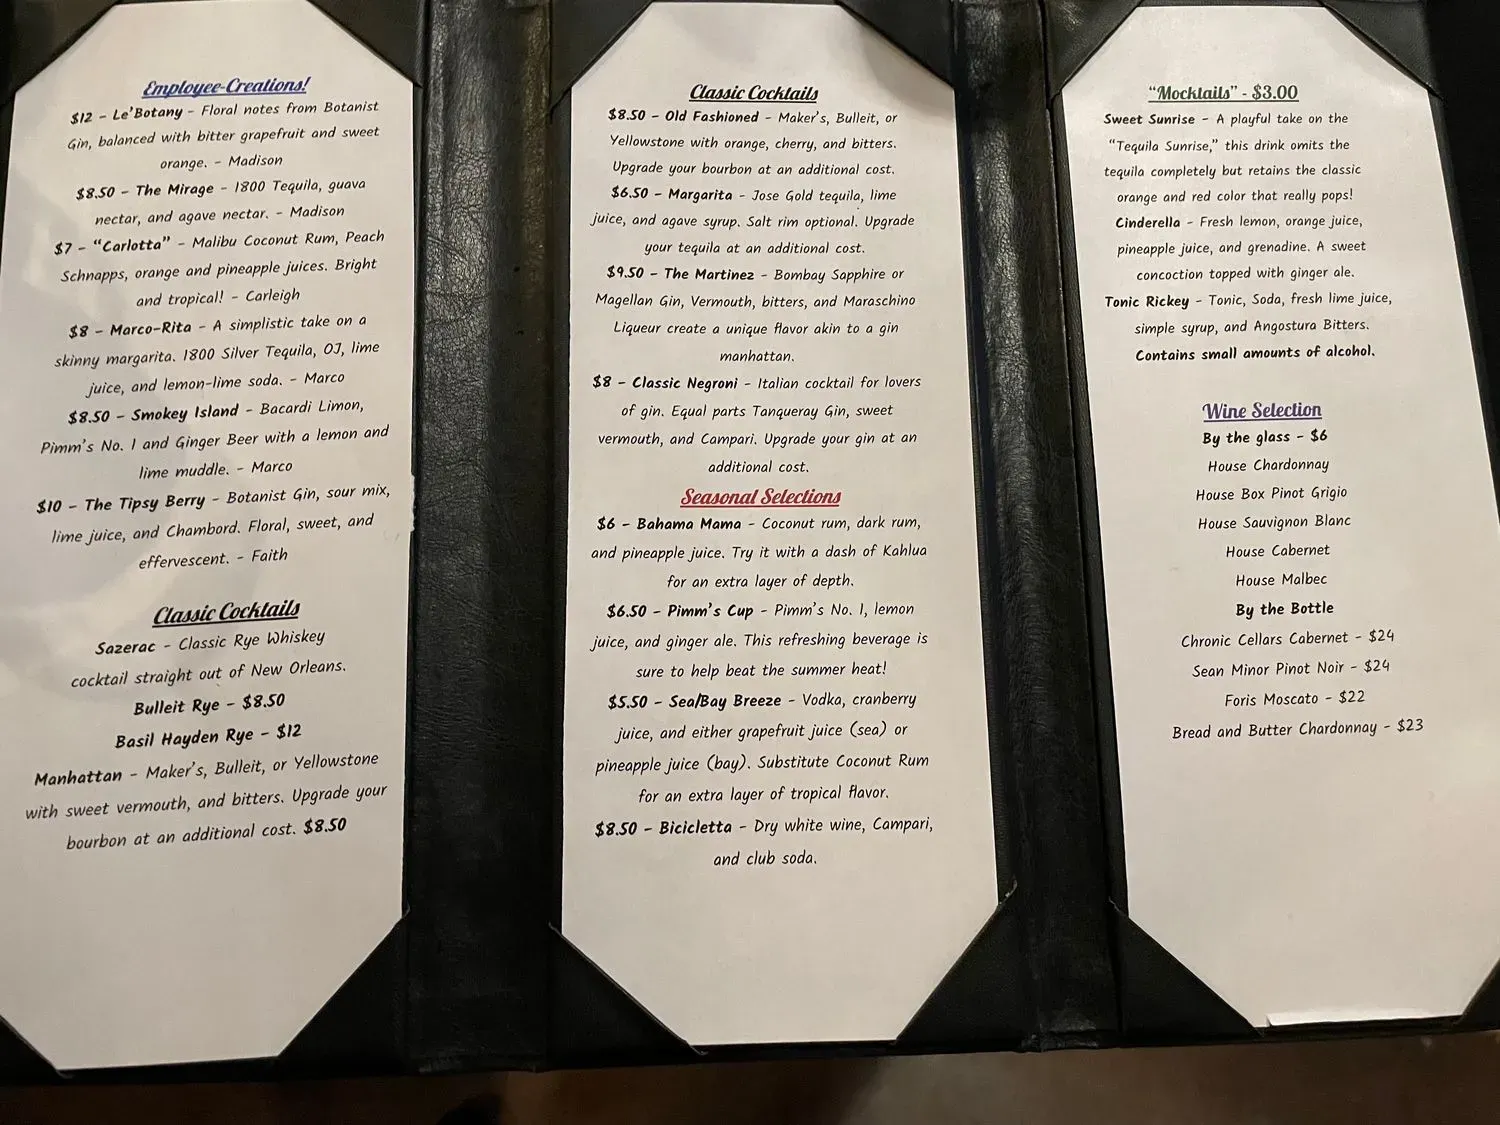 Employee-Creations!
$12 - Le'Botany - Floral notes from Botanist
Gin, balanced with bitter grapefruit and sweet
orange. - Madison
$8.50 - The Mirage - 1800 Tequila, guava
nectar, and agave nectar. - Madison
$7 - "Carlotta" - Malibu Coconut Rum, Peach
Schnapps, orange and pineapple juices. Bright
and tropical! - Carleigh
$8 - Marco-Rita - A simplistic take on a
skinny margarita. 1800 Silver Tequila, OJ, lime
juice, and lemon-lime soda. - Marco
$8.50 - Smokey Island - Bacardi Limon,
Pimm's No. 1 and Ginger Beer with a lemon and
lime muddle. - Marco
$10 - The Tipsy Berry - Botanist Gin, sour mix,
lime juice, and Chambord. Floral, sweet, and
effervescent. - Faith
Classic Cocktails
Sazerac - Classic Rye Whiskey
cocktail straight out of New Orleans.
Bulleit Rye - $8.50
Basil Hayden Rye - $12
Manhattan - Maker's, Bulleit, or Yellowstone
with sweet vermouth, and bitters. Upgrade your
bourbon at an additional cost. $8.50
Classic Cocktails
$8.50 - Old Fashioned - Maker's, Bulleit, or
Yellowstone with orange, cherry, and bitters.
Upgrade your bourbon at an additional cost.
$6.50 - Margarita - Jose Gold tequila, lime
juice, and agave syrup. Salt rim optional. Upgrade
your tequila at an additional cost.
$9.50 - The Martinez - Bombay Sapphire or
Magellan Gin, Vermouth, bitters, and Maraschino
Liqueur create a unique flavor akin to a gin
manhattan.
$8 - Classic Negroni - Italian cocktail for lovers
of gin. Equal parts Tanqueray Gin, sweet
vermouth, and Campari. Upgrade your gin at an
additional cost.
Seasonal Selections
$6 - Bahama Mama - Coconut rum, dark rum,
and pineapple juice. Try it with a dash of Kahlua
for an extra layer of depth.
$6.50 - Pimm's Cup - Pimm's No. 1, lemon
juice, and ginger ale. This refreshing beverage is
sure to help beat the summer heat!
$5.50 - Sea/Bay Breeze - Vodka, cranberry
juice, and either grapefruit juice (sea) or
pineapple juice (bay). Substitute Coconut Rum
for an extra layer of tropical flavor.
$8.50 - Bicicletta - Dry white wine, Campari,
and club soda.
"Mocktails" - $3.00
Sweet Sunrise - A playful take on the
"Tequila Sunrise," this drink omits the
tequila completely but retains the classic
orange and red color that really pops!
Cinderella - Fresh lemon, orange juice,
pineapple juice, and grenadine. A sweet
concoction topped with ginger ale.
Tonic Rickey - Tonic, Soda, fresh lime juice,
simple syrup, and Angostura Bitters.
Contains small amounts of alcohol.
Wine Selection
By the glass - $6
House Chardonnay
House Box Pinot Grigio
House Sauvignon Blanc
House Cabernet
House Malbec
By the Bottle
Chronic Cellars Cabernet - $24
Sean Minor Pinot Noir - $24
Foris Moscato - $22
Bread and Butter Chardonnay - $23